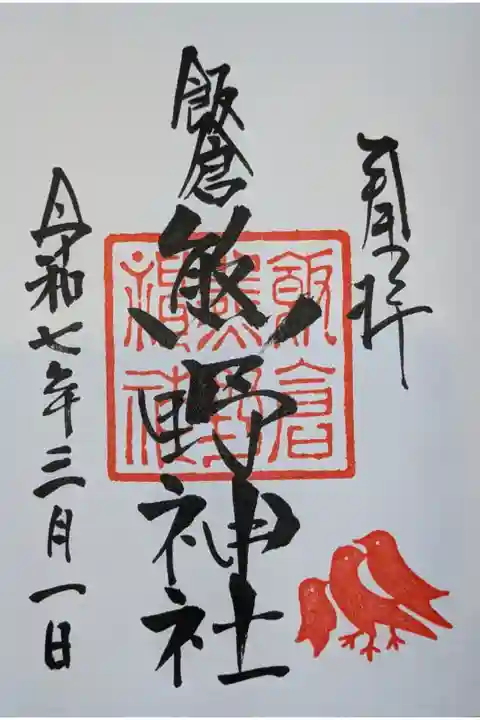 奉拝
飯倉熊野神社
飯倉熊野神社
令和七年三月一日